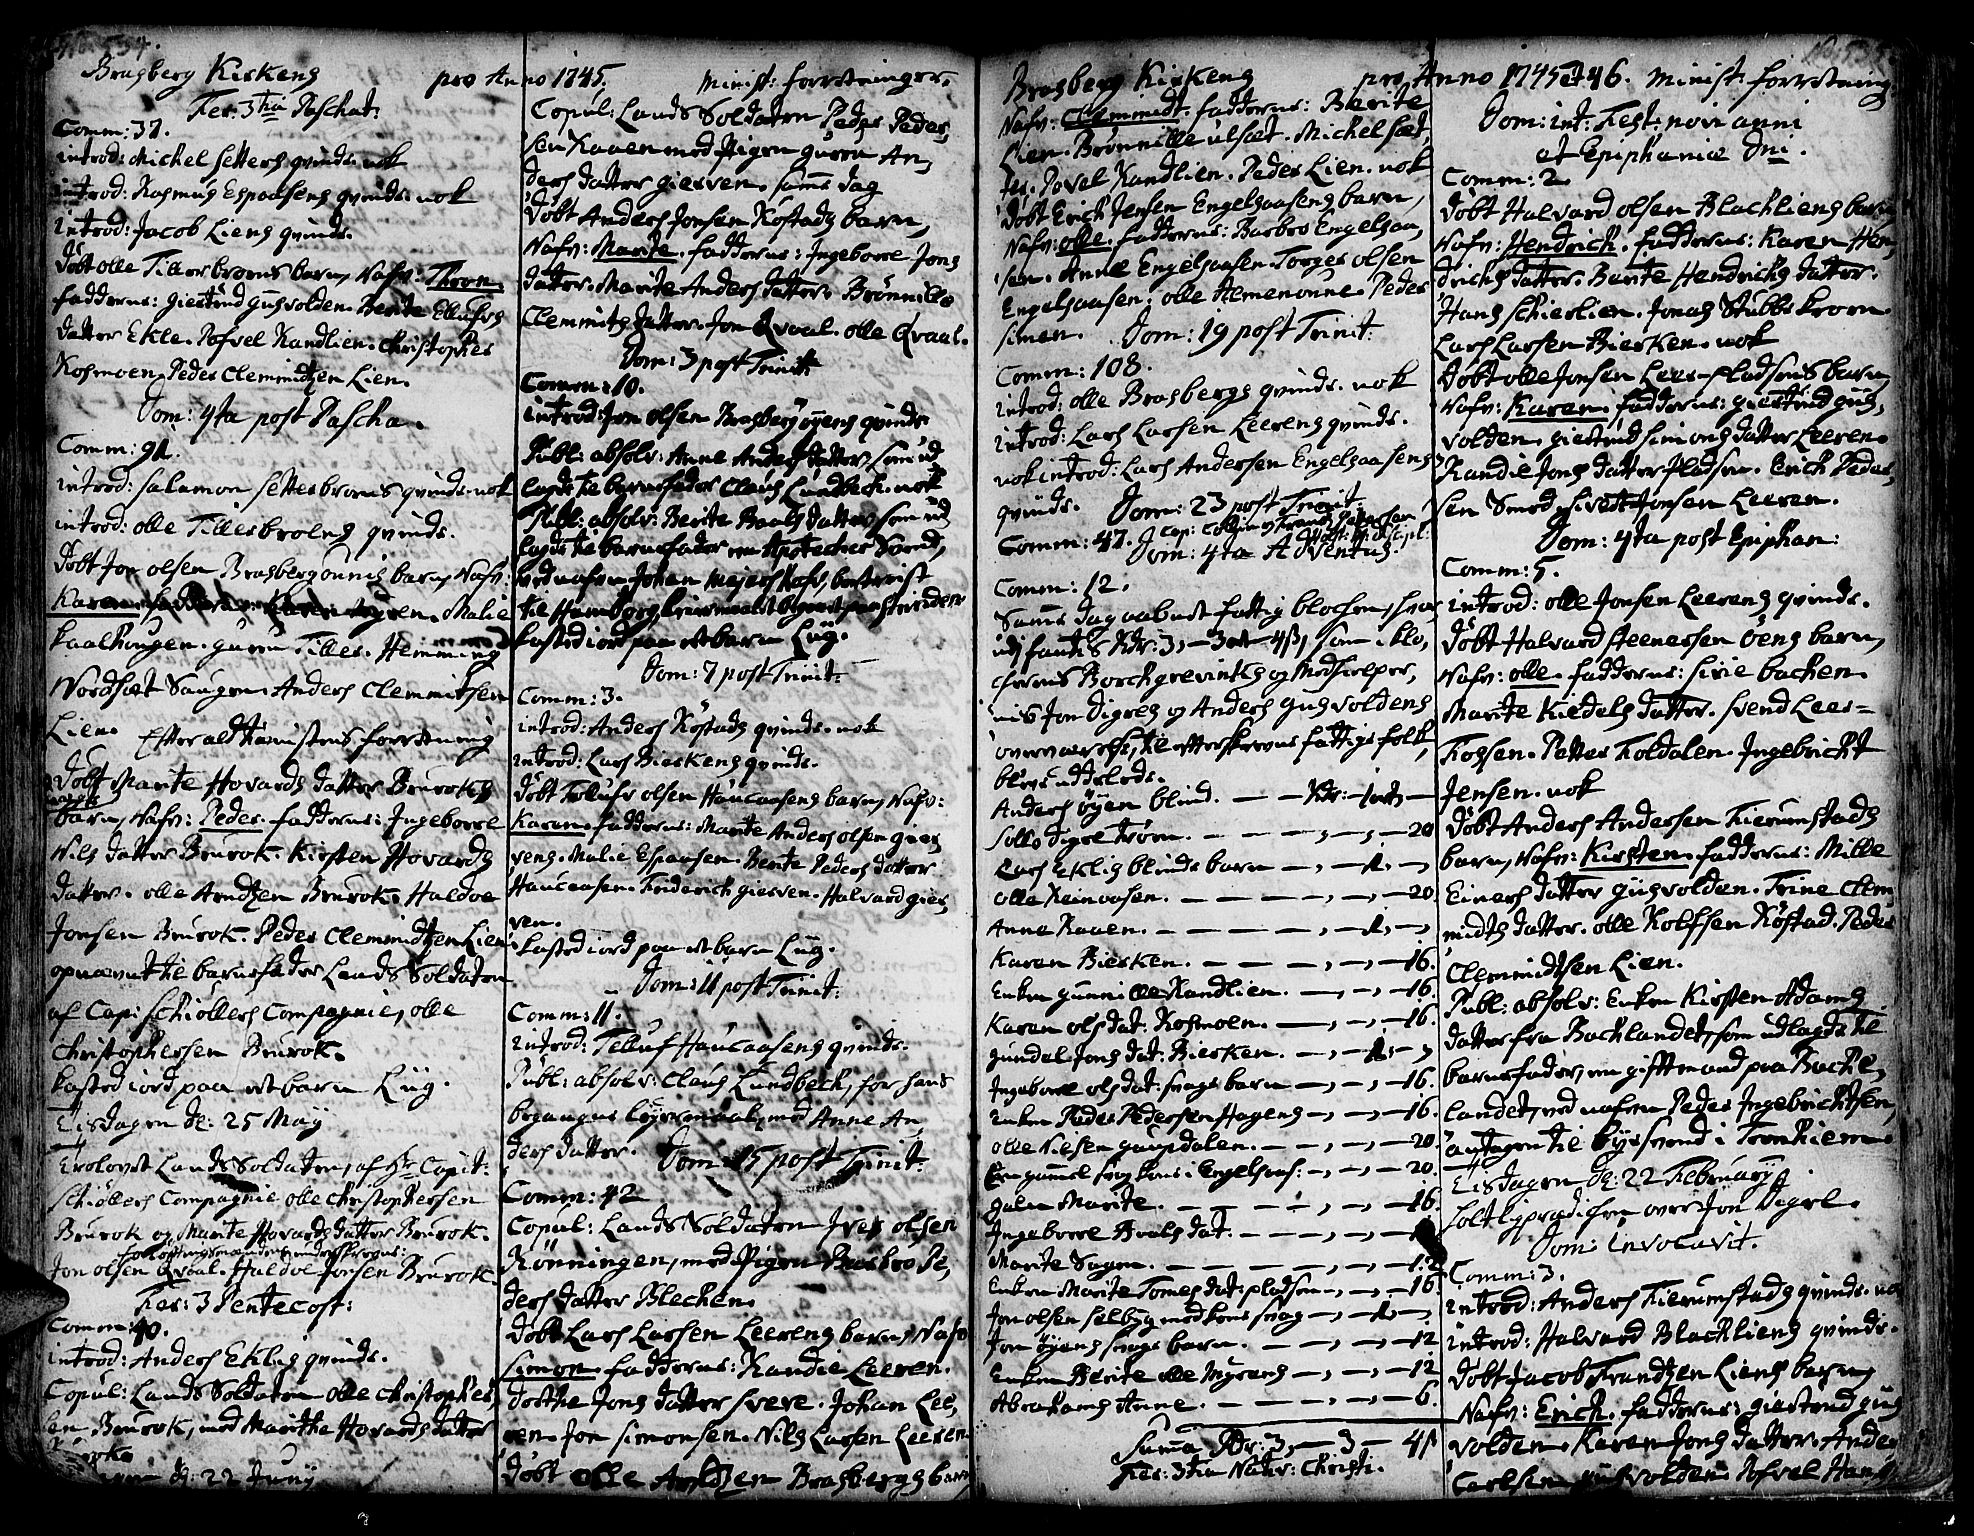 534.
Brasberg Kirkens pro Anno 1745. minist: forretninger.
Fer: 3tia Paschat:
Comm: 37.
introd: Michel Setters qvinde. nok
introd: Rasmus Espaasens qvinde. nok
introd: Jacob Liens qvinde.
Döbt olle Tillerbroens barn, Nafn: Thorn,
fadderne: giertrud gusvolden. Berite Ellufs
datter Ekle. Pofvel Randlien. Christopher
Rosmoen. Peder Clemmidtzen Lien.
Dom: 4ta post Pascha.
Comm: 91.
introd: Salamon Setterbroens qvinde. nok
introd: olle Tillerbroens qvinde.
Döbt Jon olsen Brasbergounis barn, Nafn:
Karen. fadderne: Karen Digren. Malie
kaalhougen. guren Tiller. Hemming
Nordsæt Saugen. Anders Clemmitsen
Lien. Efter aldtamistens forretning
Döbt Marite Hovards datter Bruroks
barn, Nafn: Peder. fadderne: Ingeborre
Nils datter Brurok. Kirsten Hovards
datter. olle Arntzen Brurok. Haldoe
Jonsen Brurok. Peder Clemmidtzen Lien
opnævnt til barnefader Lands Soldaten
af Cap: Schiöllers Compagnie, olle
Christophersen Brurok.
kasted iord paa et barn Liig.
Tisdagen d: 25 Maÿ
Trolovet Lands Soldaten, af Hr Capit:
Schiöllers Compagnie olle Christophersen
Brurok og Marite Hovards datter Brurok.
forlovningsmændene underskrevne:
Jon olsen Qvaal. Haldoe Jonsen Brurok.
Fer: 3 Pentecost:
Comm: 40.
introd: Anders Eklis qvinde.
Copul: Lands Soldaten olle Christopher,
sen Brurok, med Marithe Hovards datter
Brurok.
d: 22 Junÿ
Copul: Lands Soldaten Peder Peder,
sen Kaven med Pigen guren An,
ders datter giesven. samme dag
Döbt Anders Jonsen Röstads barn,
Nafn: Marite. fadderne: Ingeborre Jons
datter. Marite Anders datter. Brönnille
Clemmits datter. Jon Qvaal. olle Qvaal.
Dom: 3 post Trinit:
Comm: 10.
introd: Jon olsen Brasbergöyens qvinde
Publ: absolv: Anne Anders datter, som ud
lagde til barnefader Claus Lundbech. nok
Publ: absolv: Berite Baals datter, som ud
lagde til barnefader en Apotecker Svend,
ved nafn Johan Mejers Hafn, bortreist
til Hamborg
kasted iord paa et barn Liig.
Dom: 7 post Trinit:
Comm: 3.
introd: Anders Röstads qvinde. nok
introd: Lars Bierkens qvinde.
Döbt Tolluf olsen Haucaasens barn, Nafn:
Karen. fadderne: Marite Anders olsen gies
vens. Malie Espaasen. Berite Peders datter
Haucaasen. Friderich giesven. Halvard gies,
ven.
kasted iord paa et barn Liig.
Dom: 11 post Trinit:
Comm: 11.
introd: Tolluf Haucaasens qvinde.
Publ: absolv: Claus Lundbech, for hans
begangne leyermaal, med Anne An,
ders datter. Dom: 15 post Trinit:
Comm: 42
Copul: Lands Soldaten Iver olsen
Rönningen, med Pigen Barbro Pe,
ders datter Blechen.
Döbt Lars Larsen Leerens barn, Nafn
Simon. fadderne: Randie Leeren.
Dorthe Jons datter Svere. Johan Lee,
ren. Jon Simonsen. Nils Larsen Leeren.
Döbt olle Arntzen Brasbergs barn
535.
Brasberg Kirkens pro Anno 1745 et 46. minist: forretning
Nafn: Clemmidt. fadderne: Berite
Lien. Brönnille ulsæt. Michel sæt,
ter. Povel Randlien. Peder Lien. nok
Döbt Erich Jensen Engelsaasens barn,
Nafn: olle. fadderne: Barbro Engelsaa,
sen. Anne Engelsaasen. Torger olsen
Engelsaasen. olle Almenonne. Peder
simen. Dom: 19 post Trinit:
Comm: 108.
introd: olle Brasbergs qvinde. nok
introd: Lars Larsen Leerens qvinde.
nok introd: Lars Andersen Engelsaasens
qvinde. Dom: 23 post Trinit
Comm: 47.
Dom: 4ta Adventus.
Comm: 12.
Samme dag aabnet fattig blochen, hvor
udj fantes Rdr: 3, — 3 ort 4 β, som i klo,
cherens Borchgrevinks og Medhielper,
nis Jon Digres og Anders Gusvoldens
overværelse, til efterskrevne fattige folk,
blev uddelede.
Anders öyen blind. — — Rdr: — 1 ort —
Solle digre trøen. — — — 20
Lars Eklis blinde barn — — 1. —
olle Reinaasen. — — — 20.
Anne Kaven. — — — 1. —
Karen Biesken. — — — 16.
Enken gunni olle Randlien. — — 16.
Karen ols dat: Rosmoen. — — 16.
gundel Jons dat: Biesken. — — 1. —
Ingeborre ols dat: svage barn — — 16.
Enken Peder Pedersen Hagens — — 16.
olle Nilsen gaupdalen. — — 20.
En gammel svag kone i Engelsaas: — — 20.
galen Marite. — — — 16.
Ingeborre Arals dat. — — —
Marite Sagen. — — — 12
Enken Marite Tomes dat: pladsen — — 16.
Jon olsen selbyg med kone svag — — 1. —
Jon öyens svage barn. — — — 12.
Enken Berite olle Myrens — — 12
Abrahams Anne. — — — 6.
Summa Rdr: 3, — 3 — 4 β
Fer: 3tia Nativ: Christi.
Dom: int: Fest: novi anni
et Epiphaniæ Dni.
Comm: 2.
Döbt Halvard olsen Blachliens barn
Nafn: Hendrich. fadderne: Karen Hen,
drichs datter. Berite Hendrichs datter.
Hans Schierlien. Jonas Stubbekroen.
Lars Larsen Biesken. nok
Döbt olle Jonsen Leer-pladsens barn
Nafn: Karen. fadderne: giertrud gus,
volden. giertrud Simons datter Leeren.
Randie Jons datter Pladsen. Erich Peder,
sen Smed. Sivert Jonsen Leeren.
Dom: 4ta post Epiphan:
Comm: 5.
introd: olle Jonsen Leerens qvinde.
Döbt Halvard Steenersen Öens barn,
Nafn: olle. fadderne: Sirie bachen.
Marite Kiedels datter. Svend Leer=
Fossen. Petter Foldalen. Ingebricht
Jensen. nok
Döbt Anders Andersen Fierumstads
barn, Nafn: Kirsten. fadderne: Mille
Einers datter gusvolden. Trine Clem
midts datter. olle Rolfsen Röstad. Peder
Clemmidtsen Lien.
Publ: absolv: Enken Kirsten Adams
datter fra Bachlandet, som udlagde til
barnefader, en gifft mand paa Bache,
landet, ved nafn Peder Ingebrichtsen,
antagen til byesvend i Tronhiem.
Tisdagen d: 22 Februarÿ
holt ligprædichen over Jon Digre.
Dom: invocavit.
Comm: 3.
introd: Anders Fierumstads qvinde. nok
introd: Halvard Blachliens qvinde.
Döbt Jacob Frandtzen Liens barn,
Nafn: Erich. fadderne: giertrud gus
volden. Karen Jons datter. Anders
Carlsen gusvolden. Pofvel Hans